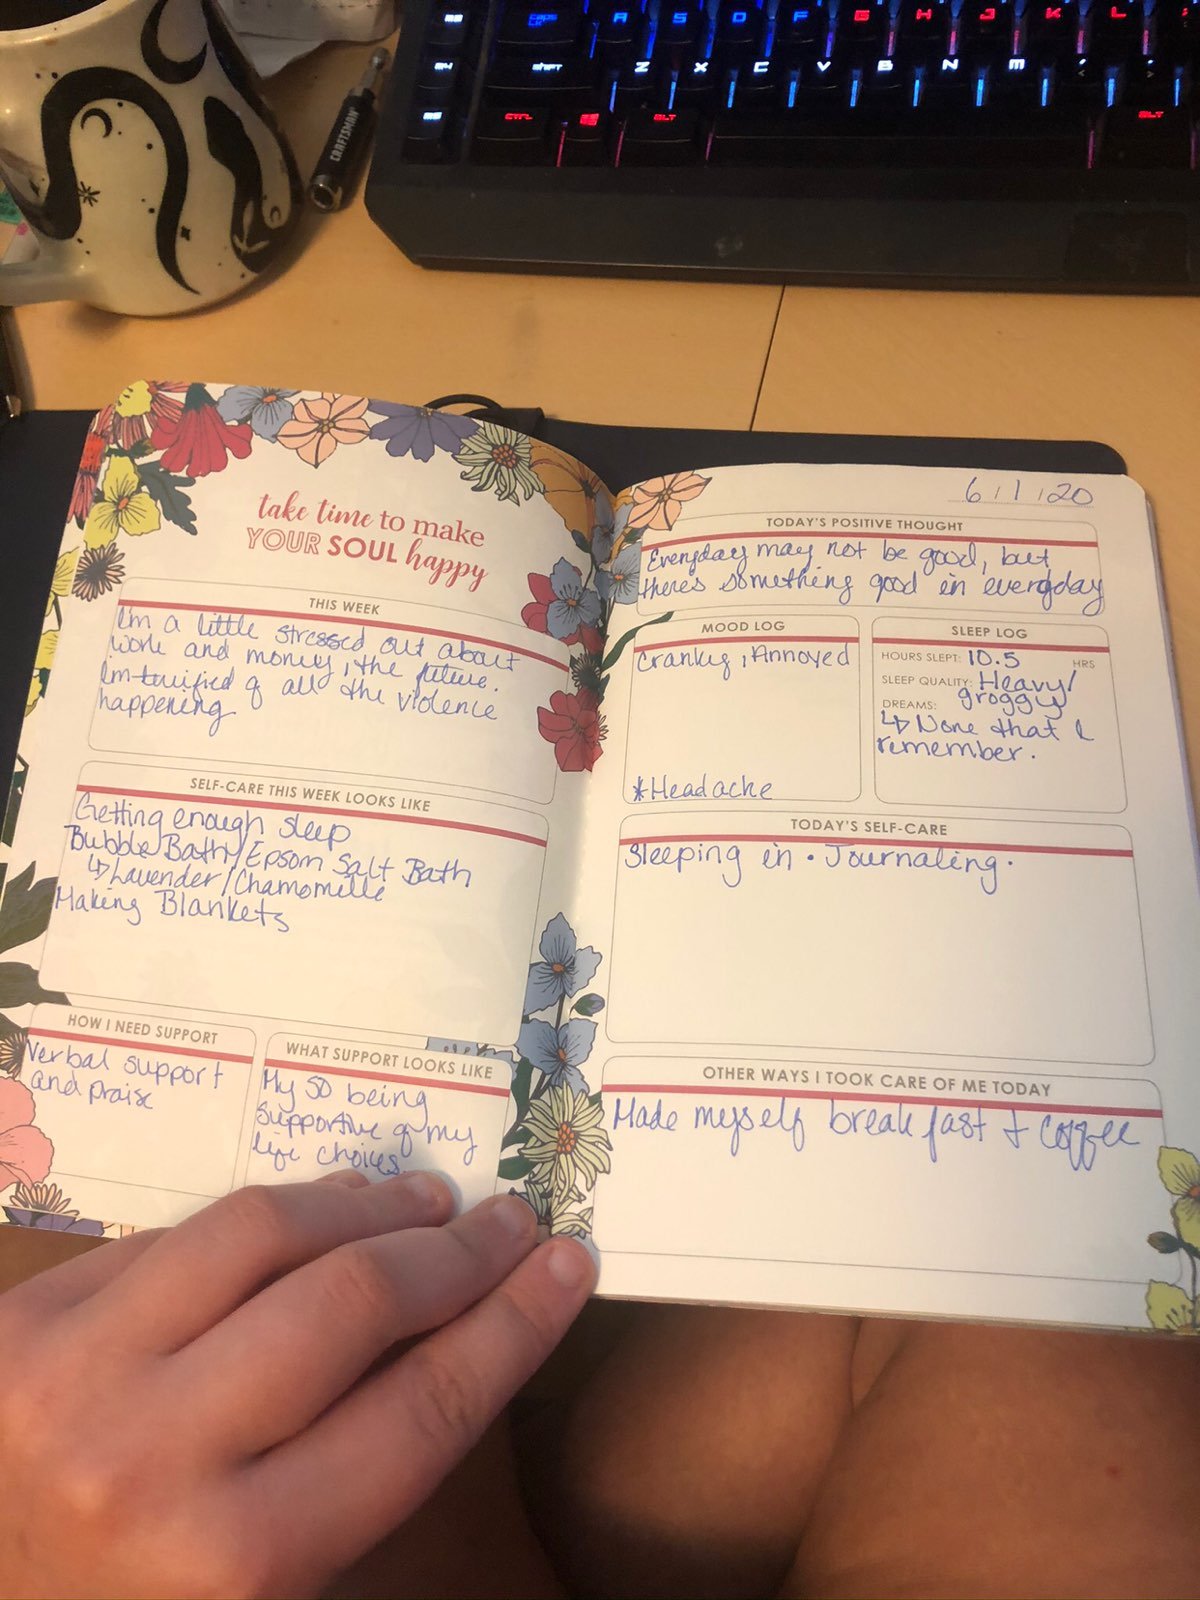 Caps
LK
A
S
D
F
G
H
J
K
L
SHIFT
Z
X
C
V
B
N
M
CTRL
ALT
ALT
CRAFTSMAN
take time to make
YOUR SOUL happy
THIS WEEK
I'm a little stressed out about
work and money, the future.
I'm terrified of all the violence
happening
SELF-CARE THIS WEEK LOOKS LIKE
Getting enough sleep
Bubble Bath/Epsom Salt Bath
↳ Lavender/Chamomille
Making Blankets
HOW I NEED SUPPORT
Verbal support
and praise
WHAT SUPPORT LOOKS LIKE
My SO being
supportive of my
life choices.
6/1/20
TODAY'S POSITIVE THOUGHT
Everyday may not be good, but
there's something good in everyday
MOOD LOG
Cranky, Annoyed
*Headache
SLEEP LOG
HOURS SLEPT: 10.5 HRS
SLEEP QUALITY: Heavy/
groggy
DREAMS:
↳ None that I
remember.
TODAY'S SELF-CARE
Sleeping in • Journaling •
OTHER WAYS I TOOK CARE OF ME TODAY
Made myself breakfast + coffee